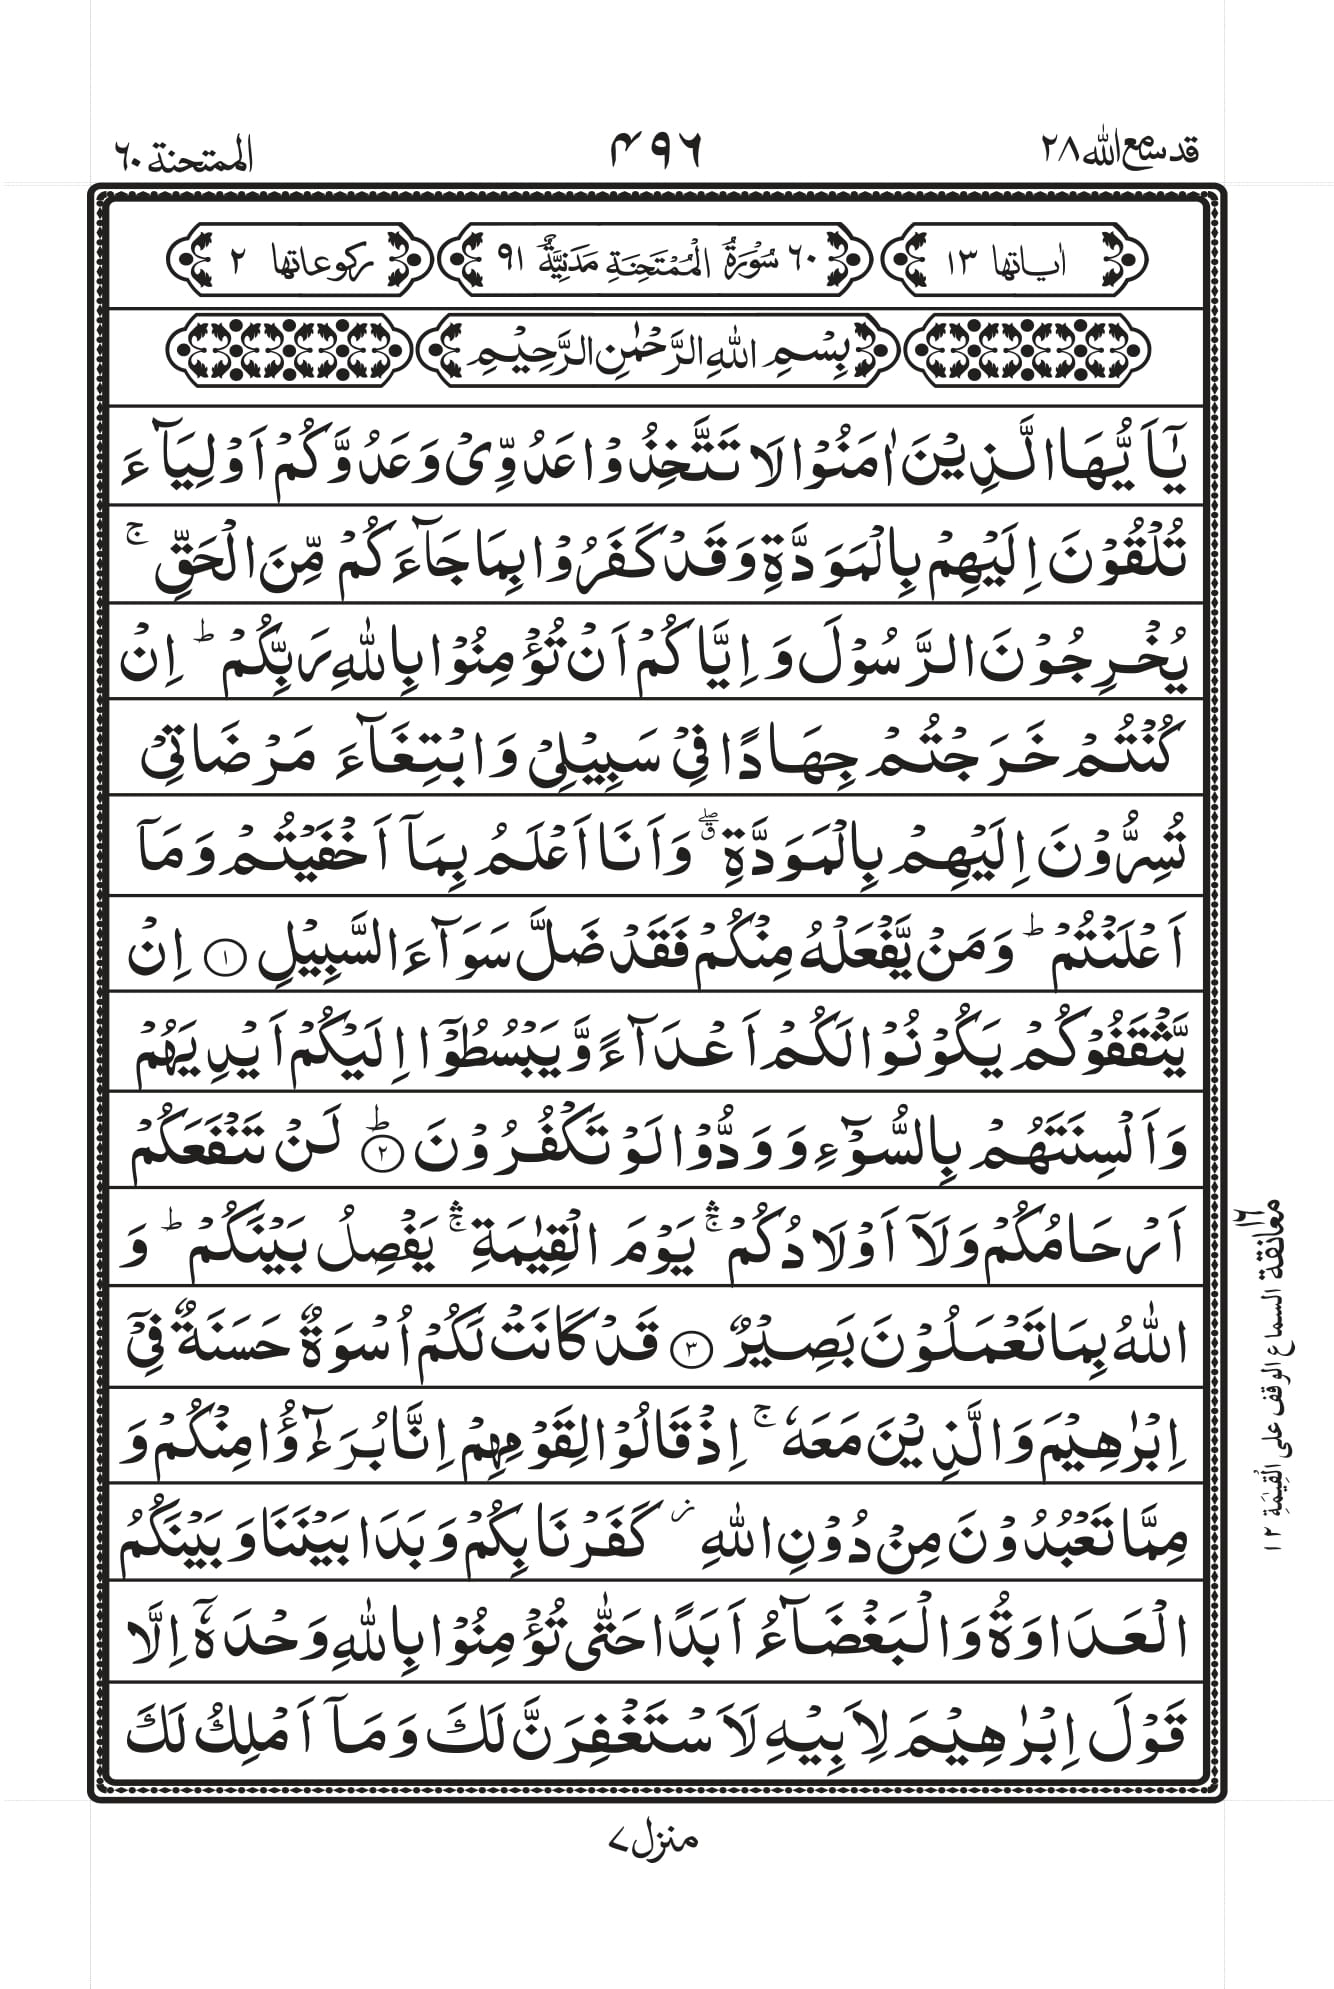 قد سمع الله ٢٨
۴۹۶
الممتحنة ٦٠
اٰیاتها ١٣
٦٠ سُوْرَةُ الْمُمْتَحِنَةِ مَدَنِيَّةٌ ٩١
ركوعاتها ٢
بِسْمِ اللهِ الرَّحْمٰنِ الرَّحِيْمِ
يٰٓاَيُّهَا الَّذِيْنَ اٰمَنُوْا لَا تَتَّخِذُوْا عَدُوِّيْ وَعَدُوَّكُمْ اَوْلِيَآءَ
تُلْقُوْنَ اِلَيْهِمْ بِالْمَوَدَّةِ وَقَدْ كَفَرُوْا بِمَا جَآءَكُمْ مِّنَ الْحَقِّ ۚ
يُخْرِجُوْنَ الرَّسُوْلَ وَاِيَّاكُمْ اَنْ تُؤْمِنُوْا بِاللهِ رَبِّكُمْ ؕ اِنْ
كُنْتُمْ خَرَجْتُمْ جِهَادًا فِيْ سَبِيْلِيْ وَابْتِغَآءَ مَرْضَاتِيْ
تُسِرُّوْنَ اِلَيْهِمْ بِالْمَوَدَّةِ ۖق وَاَنَا اَعْلَمُ بِمَآ اَخْفَيْتُمْ وَمَآ
اَعْلَنْتُمْ ؕ وَمَنْ يَّفْعَلْهُ مِنْكُمْ فَقَدْ ضَلَّ سَوَآءَ السَّبِيْلِ ١ اِنْ
يَّثْقَفُوْكُمْ يَكُوْنُوْا لَكُمْ اَعْدَآءً وَّيَبْسُطُوْٓا اِلَيْكُمْ اَيْدِيَهُمْ
وَاَلْسِنَتَهُمْ بِالسُّوْٓءِ وَوَدُّوْا لَوْ تَكْفُرُوْنَ ؕ ٢ لَنْ تَنْفَعَكُمْ
اَرْحَامُكُمْ وَلَآ اَوْلَادُكُمْ ۛۚ يَوْمَ الْقِيٰمَةِ ۛۚ يَفْصِلُ بَيْنَكُمْ ؕ وَ
اللهُ بِمَا تَعْمَلُوْنَ بَصِيْرٌ ٣ قَدْ كَانَتْ لَكُمْ اُسْوَةٌ حَسَنَةٌ فِيْٓ
اِبْرٰهِيْمَ وَالَّذِيْنَ مَعَهٗ ۚ اِذْ قَالُوْا لِقَوْمِهِمْ اِنَّا بُرَءٰٓؤُا مِنْكُمْ وَ
مِمَّا تَعْبُدُوْنَ مِنْ دُوْنِ اللهِ ز كَفَرْنَا بِكُمْ وَبَدَا بَيْنَنَا وَبَيْنَكُمُ
الْعَدَاوَةُ وَالْبَغْضَآءُ اَبَدًا حَتّٰى تُؤْمِنُوْا بِاللهِ وَحْدَهٗٓ اِلَّا
قَوْلَ اِبْرٰهِيْمَ لِاَبِيْهِ لَاَسْتَغْفِرَنَّ لَكَ وَمَآ اَمْلِكُ لَكَ
معانقة ١٦
السماع الوقف على الْقِيٰمَةِ ١٢
منزل ٧